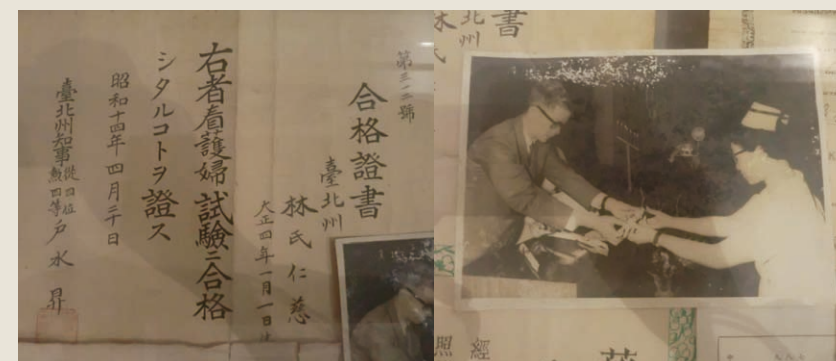 第三一二號
合格證書
臺北州
林氏仁慈
大正四年一月一日生
右者看護婦試驗ニ合格
シタルコトヲ證ス
昭和十四年四月二十日
臺北州知事從四位勲四等戶水昇
北州
書
經
照